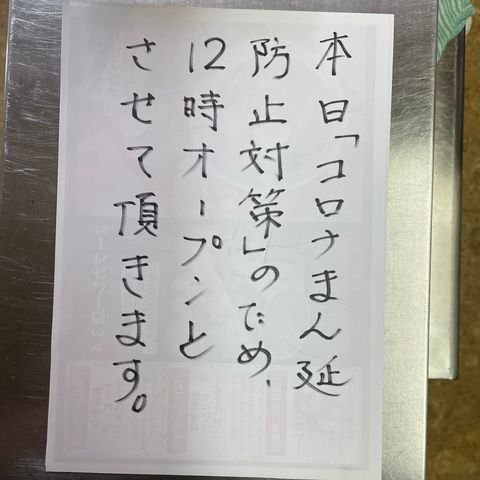 本日「コロナまん延
防止対策」のため、
12時オープンと
させて頂きます。